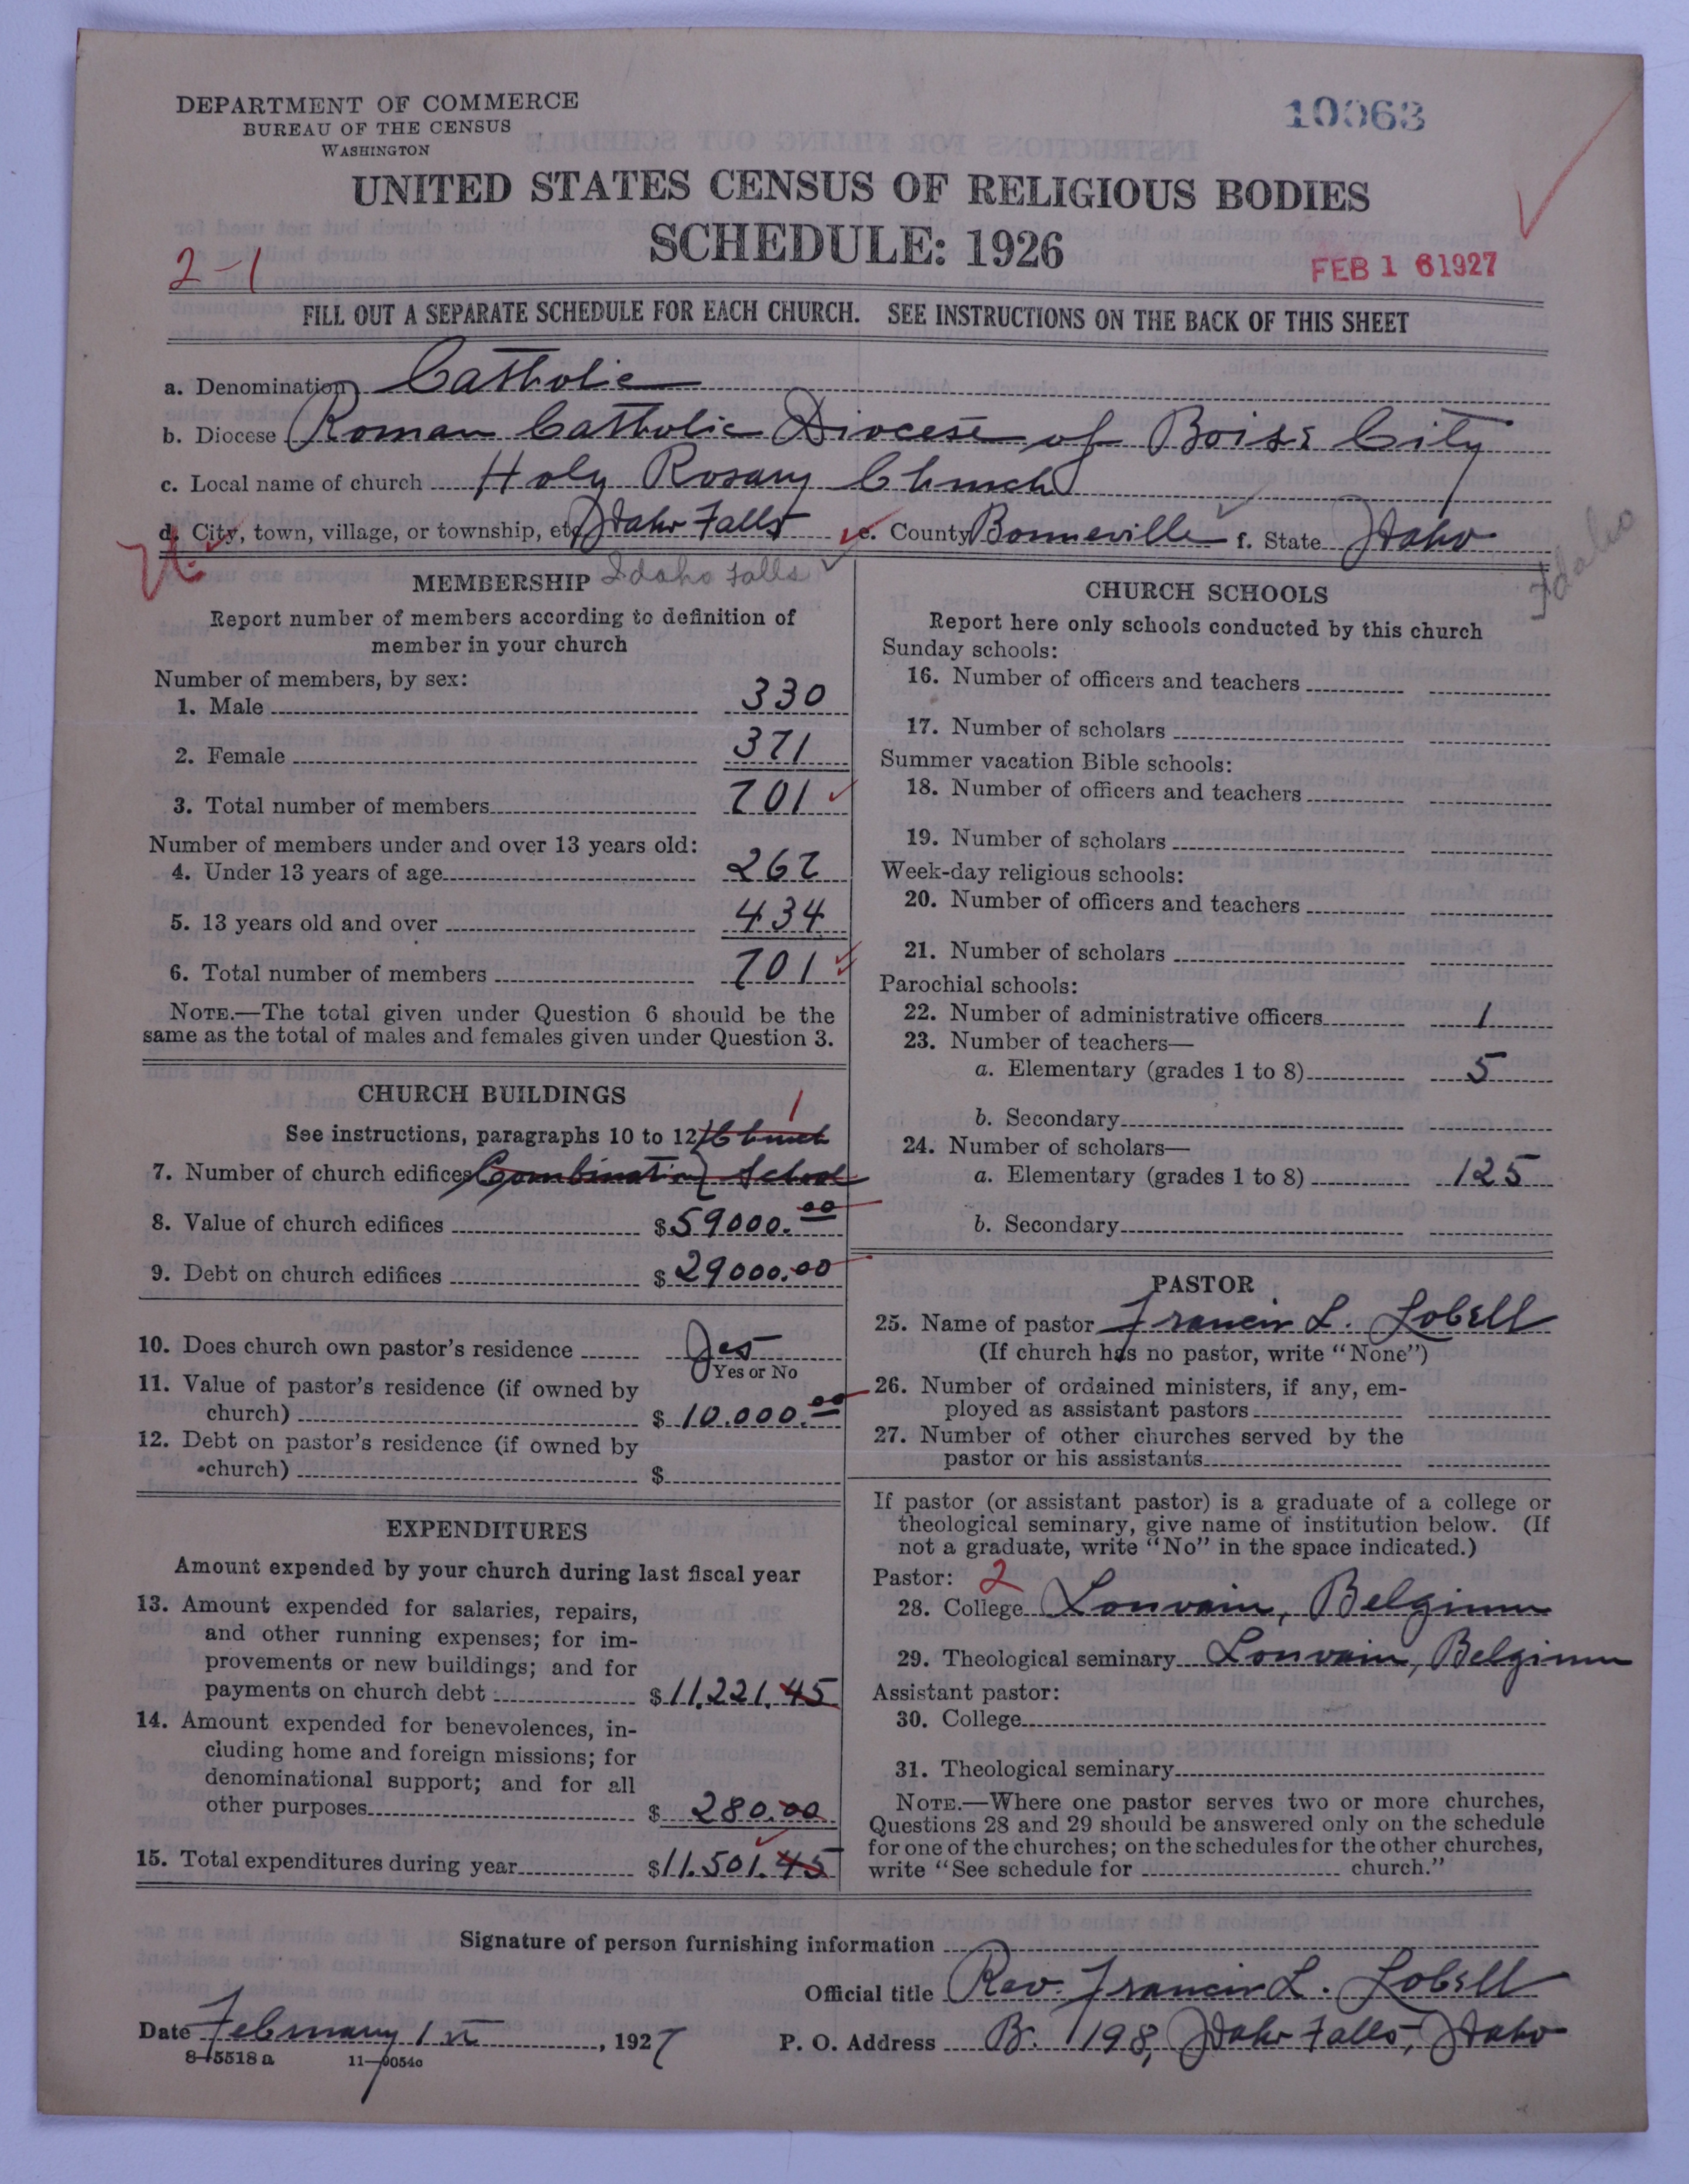 DEPARTMENT OF COMMERCE
BUREAU OF THE CENSUS
WASHINGTON
10063
UNITED STATES CENSUS OF RELIGIOUS BODIES
SCHEDULE: 1926
2-1
FEB 16 1927
FILL OUT A SEPARATE SCHEDULE FOR EACH CHURCH. SEE INSTRUCTIONS ON THE BACK OF THIS SHEET
a. Denomination Catholic
b. Diocese Roman Catholic Diocese of Boise City
c. Local name of church Holy Rosary Church
d. City, town, village, or township, etc. Idaho Falls e. County Bonneville f. State Idaho
Idaho
MEMBERSHIP Idaho Falls
Report number of members according to definition of
member in your church
Number of members, by sex:
1. Male 330
2. Female 371
3. Total number of members 701
Number of members under and over 13 years old:
4. Under 13 years of age 267
5. 13 years old and over 434
6. Total number of members 701
NOTE.—The total given under Question 6 should be the
same as the total of males and females given under Question 3.
CHURCH BUILDINGS
1
See instructions, paragraphs 10 to 12 Church
7. Number of church edifices Combination School
8. Value of church edifices $59000.00
9. Debt on church edifices $29000.00
10. Does church own pastor's residence Yes
Yes or No
11. Value of pastor's residence (if owned by
church) $10.000.00
12. Debt on pastor's residence (if owned by
church) $
EXPENDITURES
Amount expended by your church during last fiscal year
13. Amount expended for salaries, repairs,
and other running expenses; for im-
provements or new buildings; and for
payments on church debt $11,221.45
14. Amount expended for benevolences, in-
cluding home and foreign missions; for
denominational support; and for all
other purposes $280.00
15. Total expenditures during year $11.501.45
CHURCH SCHOOLS
Report here only schools conducted by this church
Sunday schools:
16. Number of officers and teachers
17. Number of scholars
Summer vacation Bible schools:
18. Number of officers and teachers
19. Number of scholars
Week-day religious schools:
20. Number of officers and teachers
21. Number of scholars
Parochial schools:
22. Number of administrative officers 1
23. Number of teachers—
a. Elementary (grades 1 to 8) 5
b. Secondary
24. Number of scholars—
a. Elementary (grades 1 to 8) 125
b. Secondary
PASTOR
25. Name of pastor Francis L. Lobell
(If church has no pastor, write "None")
26. Number of ordained ministers, if any, em-
ployed as assistant pastors
27. Number of other churches served by the
pastor or his assistants
If pastor (or assistant pastor) is a graduate of a college or
theological seminary, give name of institution below. (If
not a graduate, write "No" in the space indicated.)
Pastor: 2
28. College Louvain, Belgium
29. Theological seminary Louvain, Belgium
Assistant pastor:
30. College
31. Theological seminary
NOTE.—Where one pastor serves two or more churches,
Questions 28 and 29 should be answered only on the schedule
for one of the churches; on the schedules for the other churches,
write "See schedule for church."
Signature of person furnishing information
Official title Rev. Francis L. Lobell
Date February 1st, 1927 P. O. Address B. 198, Idaho Falls, Idaho
8-5518a 11-9054c